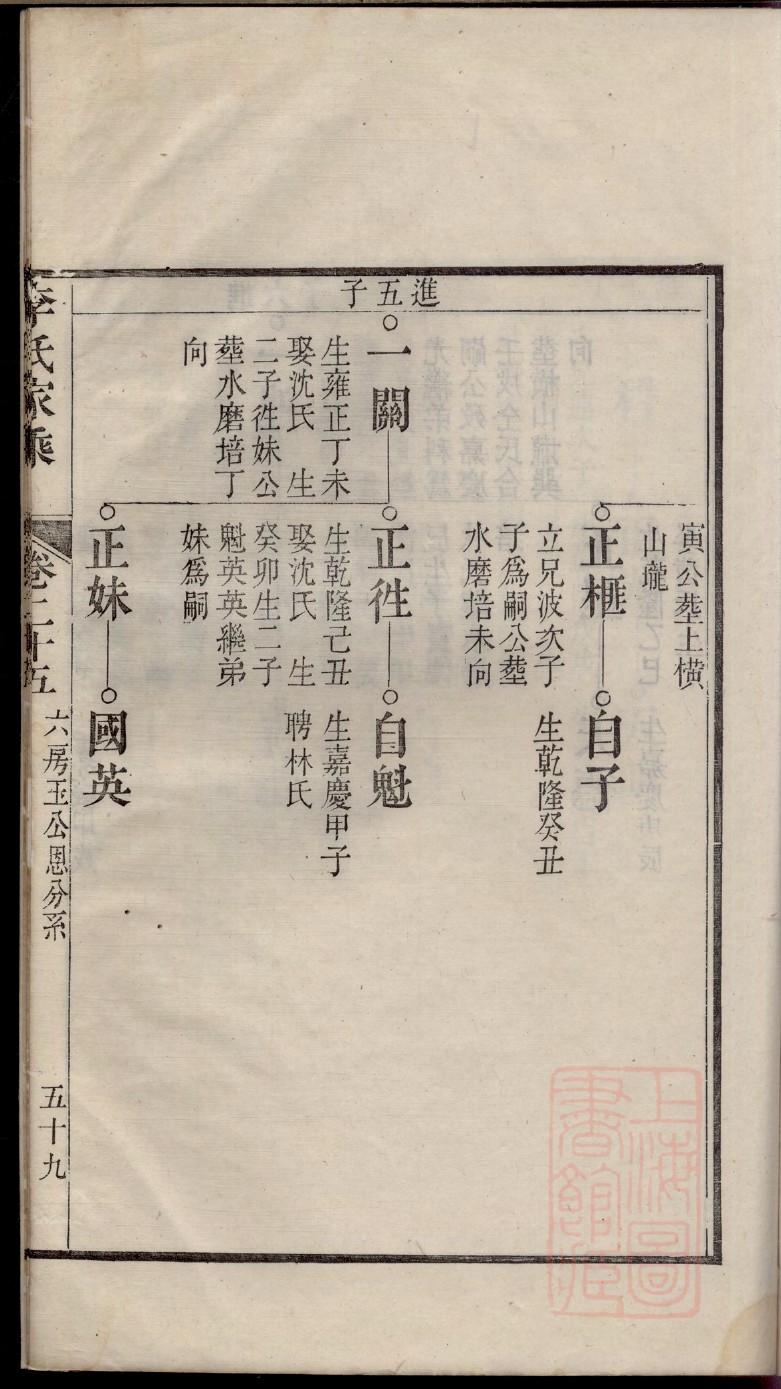 進五子
寅公塟上橫
山壠
正榧
立兄波次子
子爲嗣公塟
水磨培未向
自子
生乾隆癸丑
一關
生雍正丁未
娶沈氏 生
二子徃妹公
塟水磨培丁
向
正徃
生乾隆己丑
娶沈氏 生
癸卯生二子
魁英英繼弟
妹爲嗣
自魁
生嘉慶甲子
聘林氏
正妹
國英
李氏家乘
卷二十五
六房玉公恩分系
五十九
上海圖
書館藏